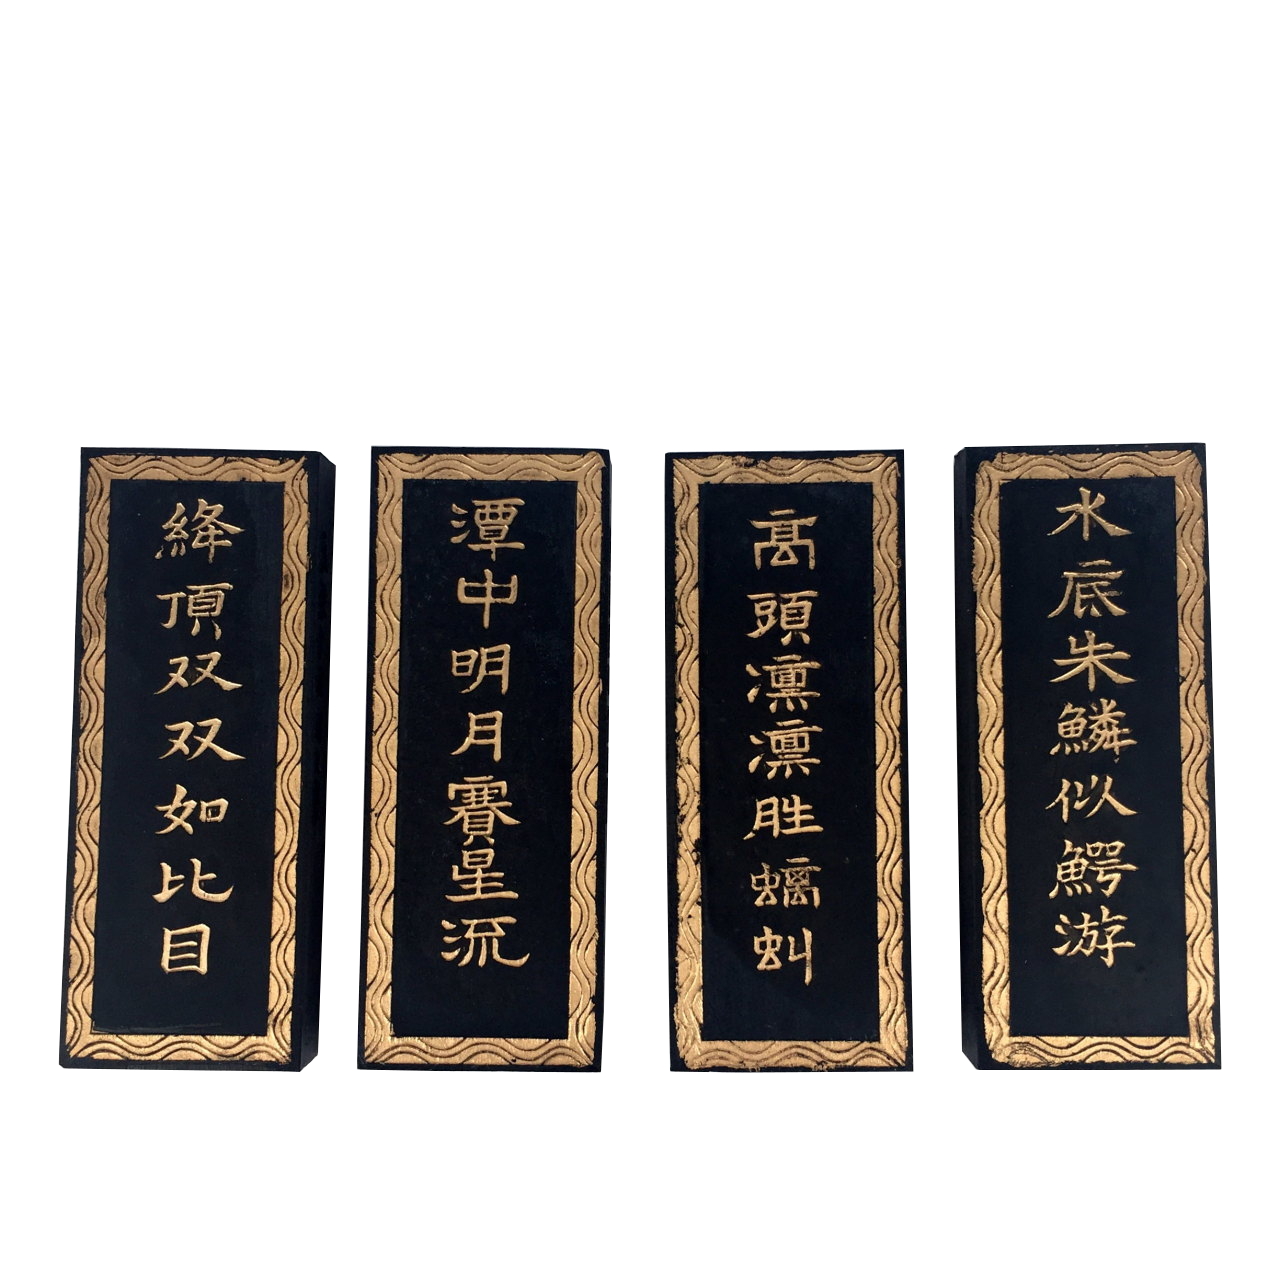 水底朱鱗似鰐游
高頭凛凛胜螭虬
潭中明月賽星流
絳頂双双如比目